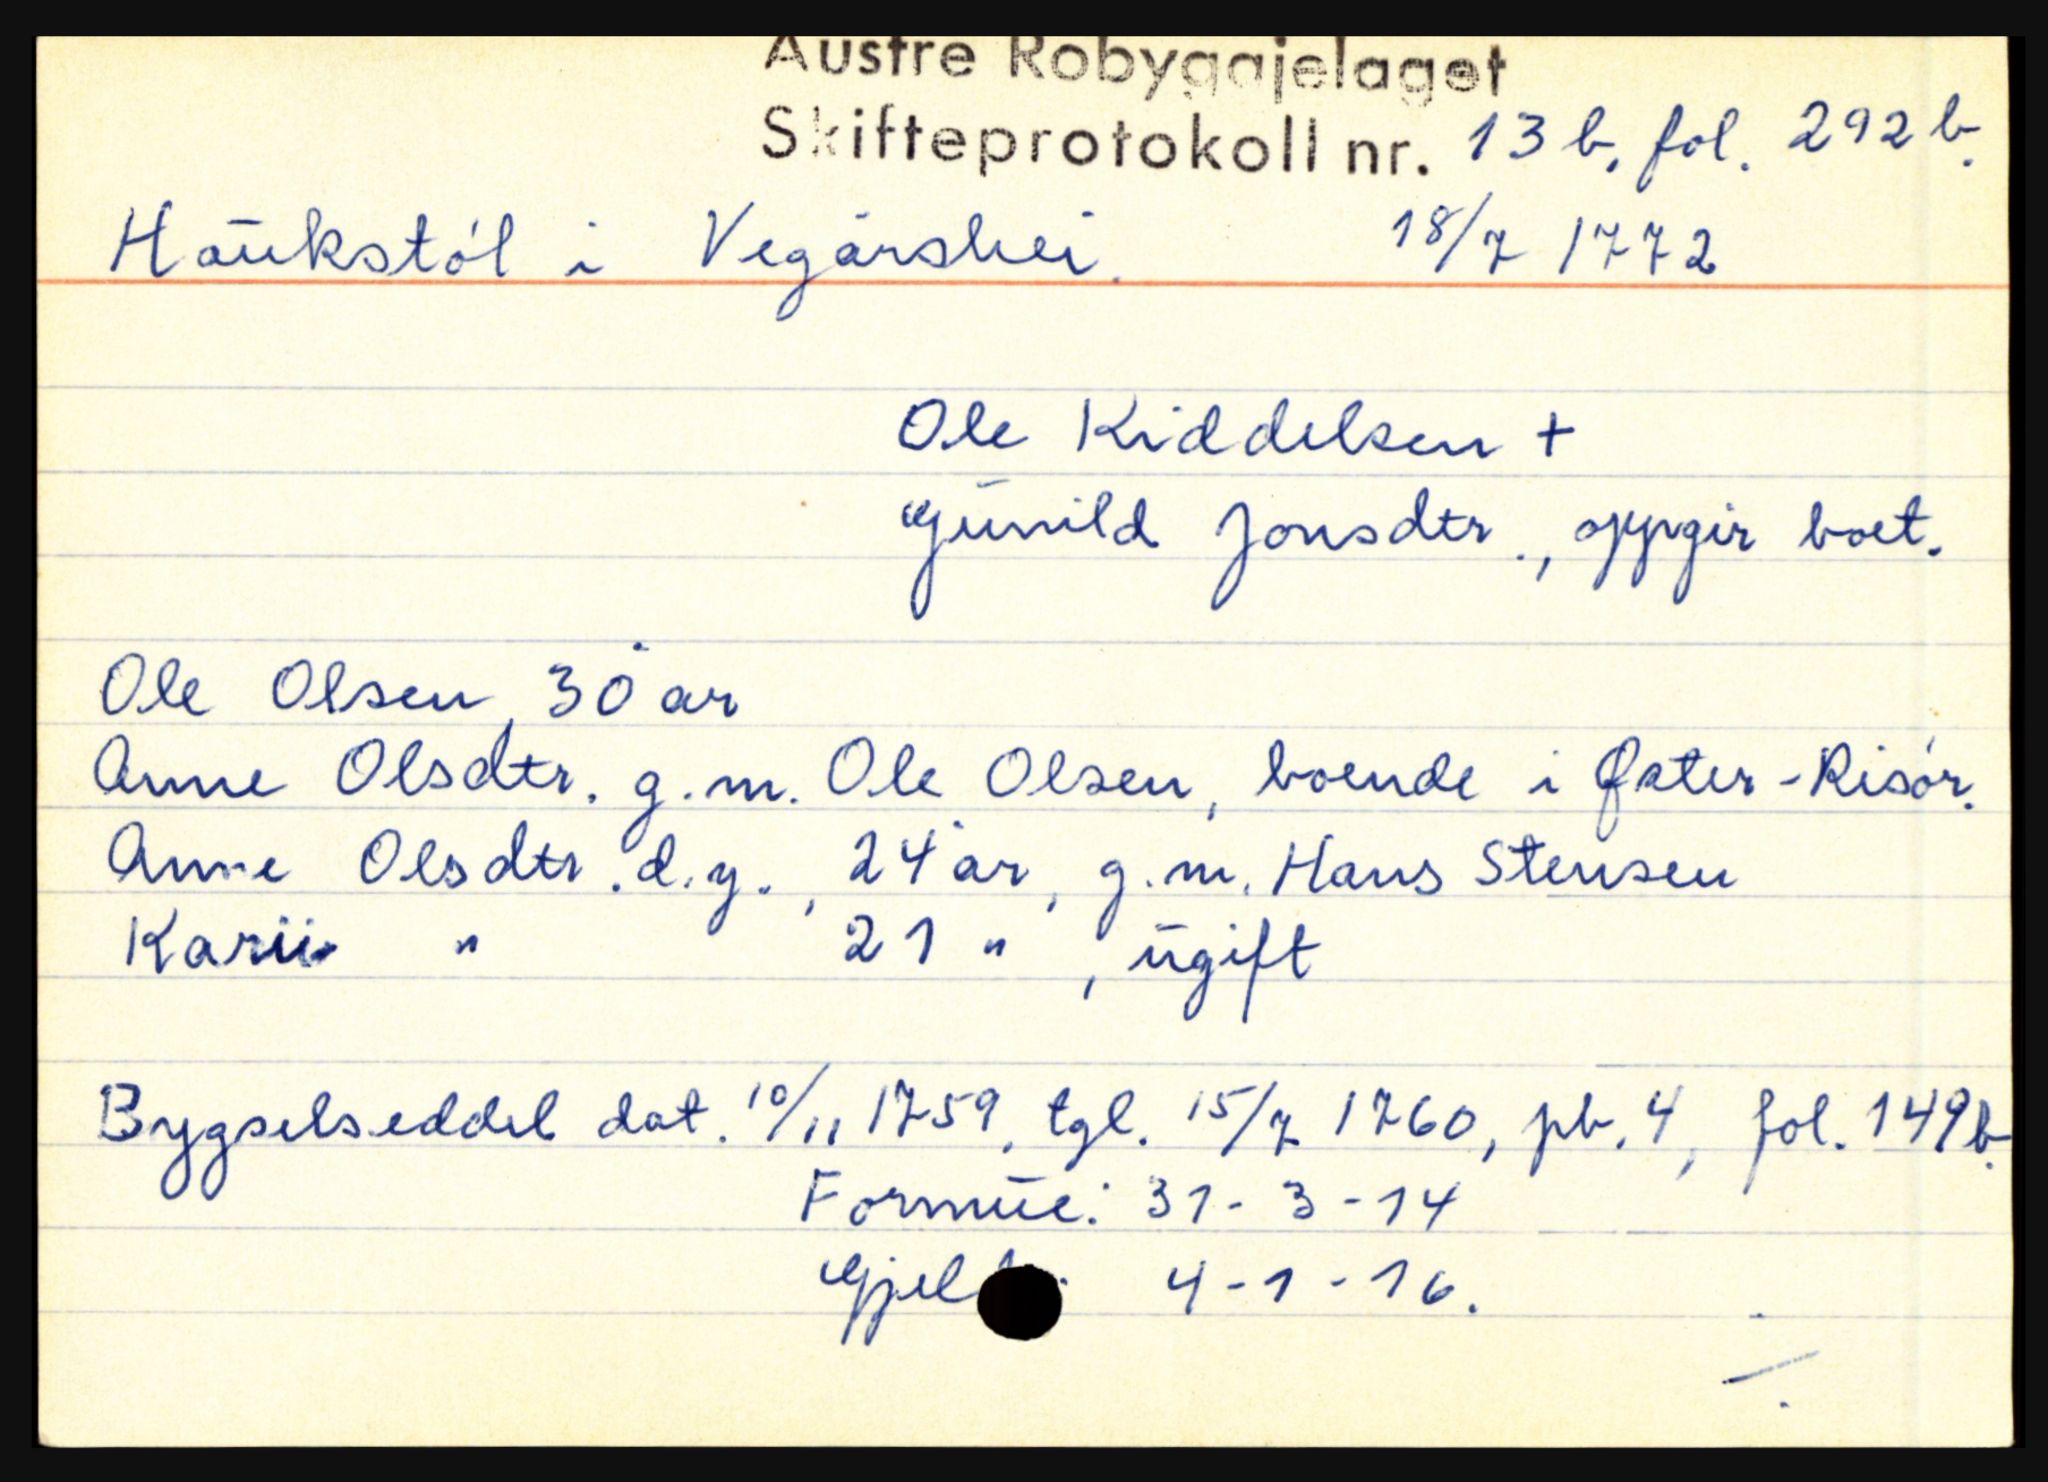 Austre Robyggjelaget
Skifteprotokoll nr. 13 b, fol. 292 b.
Haukstøl i Vegårshei. 18/7 1772
Ole Kiddelsen +
Gunild Jonsdtr., oppgir boet.
Ole Olsen, 30 år
Anne Olsdtr. g.m. Ole Olsen, boende i Øster-Risør.
Anne Olsdtr. d.y., 24 år, g.m. Hans Stensen
Kari " 21 ", ugift
Bygselseddel dat. 10/11 1759, tgl. 15/7 1760, pb. 4, fol. 149 b.
Formue: 31-3-14
Gjeld: 4-1-16.